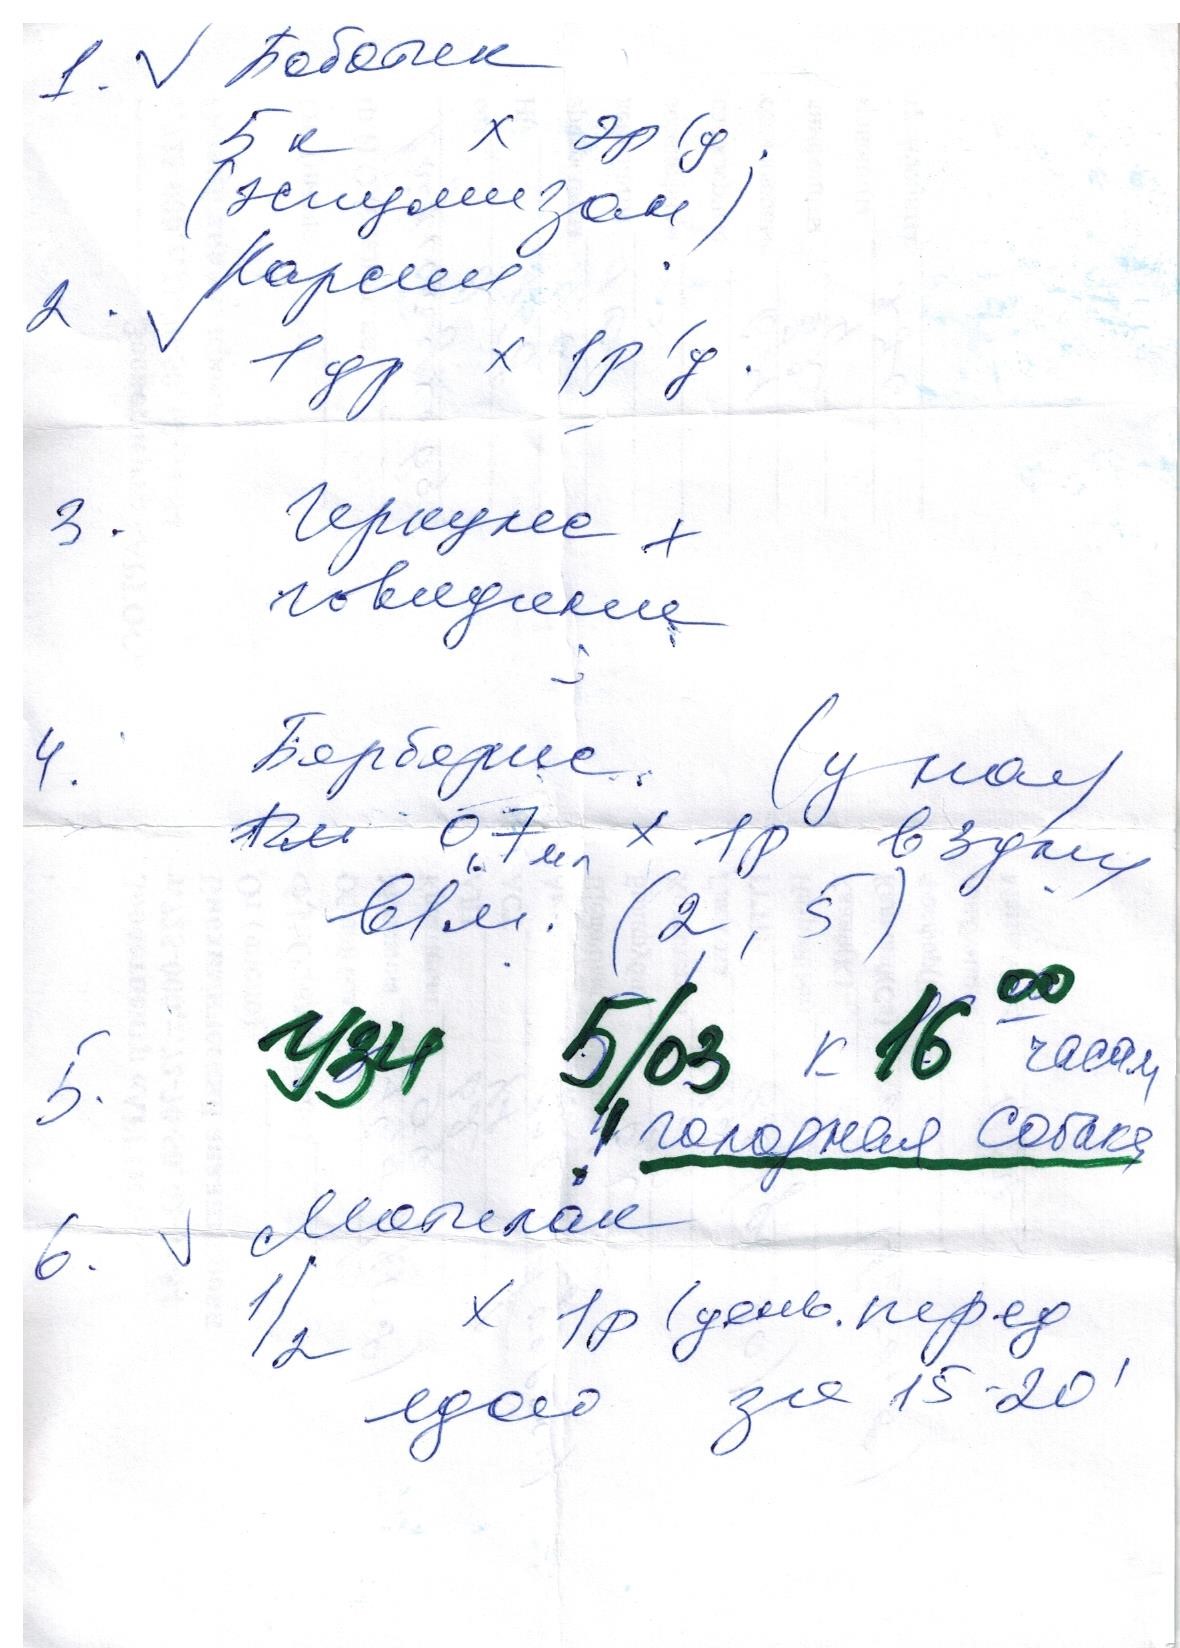 1. √ Боботик
5 к х 2р/д.
(эспумизан)
2. √ Карсил
1 др х 1р/д.
3. Геркулес +
говядина
4. Берберис. (у нас)
0,7 мл х 1р
в/м. (2, 5)
5. УЗИ 5/03 к 16⁰⁰ часам
! голодная собака
6. √ Мотилак
1/2 х 1р/день. перед
едою за 15-20'